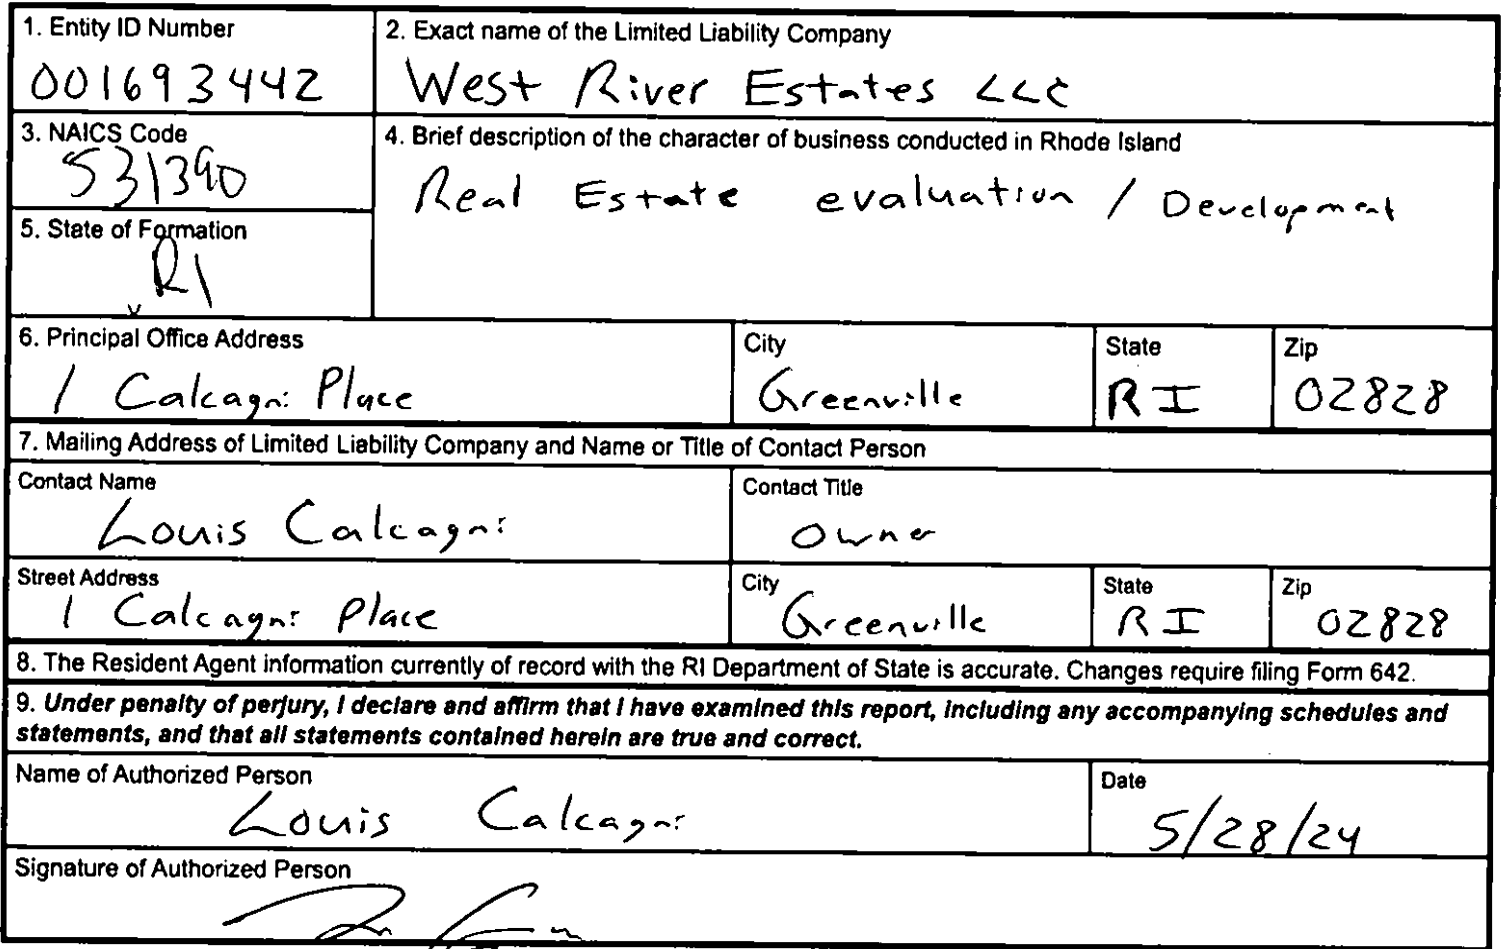 1. Entity ID Number
001693442
2. Exact name of the Limited Liability Company
West River Estates LLC
3. NAICS Code
531390
4. Brief description of the character of business conducted in Rhode Island
Real Estate evaluation / Development
5. State of Formation
RI
6. Principal Office Address
1 Calcagni Place
City
Greenville
State
RI
Zip
02828
7. Mailing Address of Limited Liability Company and Name or Title of Contact Person
Contact Name
Louis Calcagni
Contact Title
Owner
Street Address
1 Calcagni Place
City
Greenville
State
RI
Zip
02828
8. The Resident Agent information currently of record with the RI Department of State is accurate. Changes require filing Form 642.
9. Under penalty of perjury, I declare and affirm that I have examined this report, including any accompanying schedules and
statements, and that all statements contained herein are true and correct.
Name of Authorized Person
Louis Calcagni
Date
5/28/24
Signature of Authorized Person